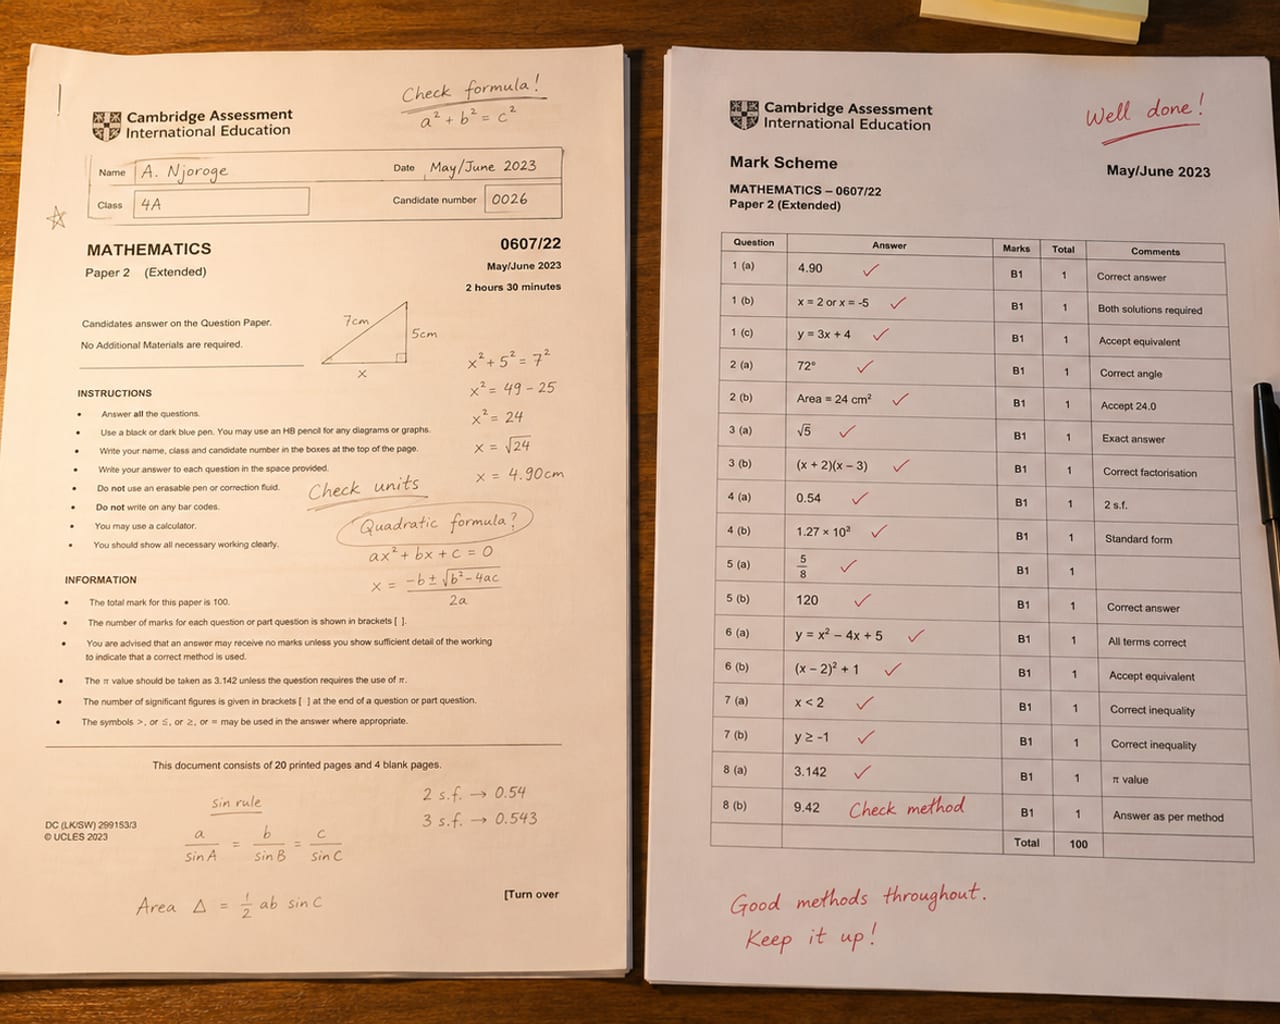 Check formula!
a² + b² = c²
Cambridge Assessment
International Education
Name A. Njoroge Date May/June 2023
Class 4A Candidate number 0026
MATHEMATICS 0607/22
Paper 2 (Extended) May/June 2023
2 hours 30 minutes
Candidates answer on the Question Paper.
No Additional Materials are required.
7cm
5cm
x
x² + 5² = 7²
x² = 49 - 25
x² = 24
x = √24
x = 4.90cm
INSTRUCTIONS
• Answer all the questions.
• Use a black or dark blue pen. You may use an HB pencil for any diagrams or graphs.
• Write your name, class and candidate number in the boxes at the top of the page.
• Write your answer to each question in the space provided.
• Do not use an erasable pen or correction fluid.
• Do not write on any bar codes.
• You may use a calculator.
• You should show all necessary working clearly.
Check units
Quadratic formula?
ax² + bx + c = 0
x = -b ± √b² - 4ac
2a
INFORMATION
• The total mark for this paper is 100.
• The number of marks for each question or part question is shown in brackets [ ].
• You are advised that an answer may receive no marks unless you show sufficient detail of the working
to indicate that a correct method is used.
• The π value should be taken as 3.142 unless the question requires the use of π.
• The number of significant figures is given in brackets [ ] at the end of a question or part question.
• The symbols >, or ≤, or ≥, or = may be used in the answer where appropriate.
This document consists of 20 printed pages and 4 blank pages.
sin rule
a b c
= =
sin A sin B sin C
2 s.f. → 0.54
3 s.f. → 0.543
DC (LK/SW) 299153/3
© UCLES 2023
Area Δ = 1/2 ab sin C
[Turn over
Cambridge Assessment
International Education
Well done!
Mark Scheme May/June 2023
MATHEMATICS – 0607/22
Paper 2 (Extended)
Question Answer Marks Total Comments
1 (a) 4.90 ✓ B1 1 Correct answer
1 (b) x = 2 or x = -5 ✓ B1 1 Both solutions required
1 (c) y = 3x + 4 ✓ B1 1 Accept equivalent
2 (a) 72° ✓ B1 1 Correct angle
2 (b) Area = 24 cm² ✓ B1 1 Accept 24.0
3 (a) √5 ✓ B1 1 Exact answer
3 (b) (x + 2)(x – 3) ✓ B1 1 Correct factorisation
4 (a) 0.54 ✓ B1 1 2 s.f.
4 (b) 1.27 × 10³ ✓ B1 1 Standard form
5 (a) 5/8 ✓ B1 1
5 (b) 120 ✓ B1 1 Correct answer
6 (a) y = x² – 4x + 5 ✓ B1 1 All terms correct
6 (b) (x – 2)² + 1 ✓ B1 1 Accept equivalent
7 (a) x < 2 ✓ B1 1 Correct inequality
7 (b) y ≥ -1 ✓ B1 1 Correct inequality
8 (a) 3.142 ✓ B1 1 π value
8 (b) 9.42 Check method B1 1 Answer as per method
Total 100
Good methods throughout.
Keep it up!